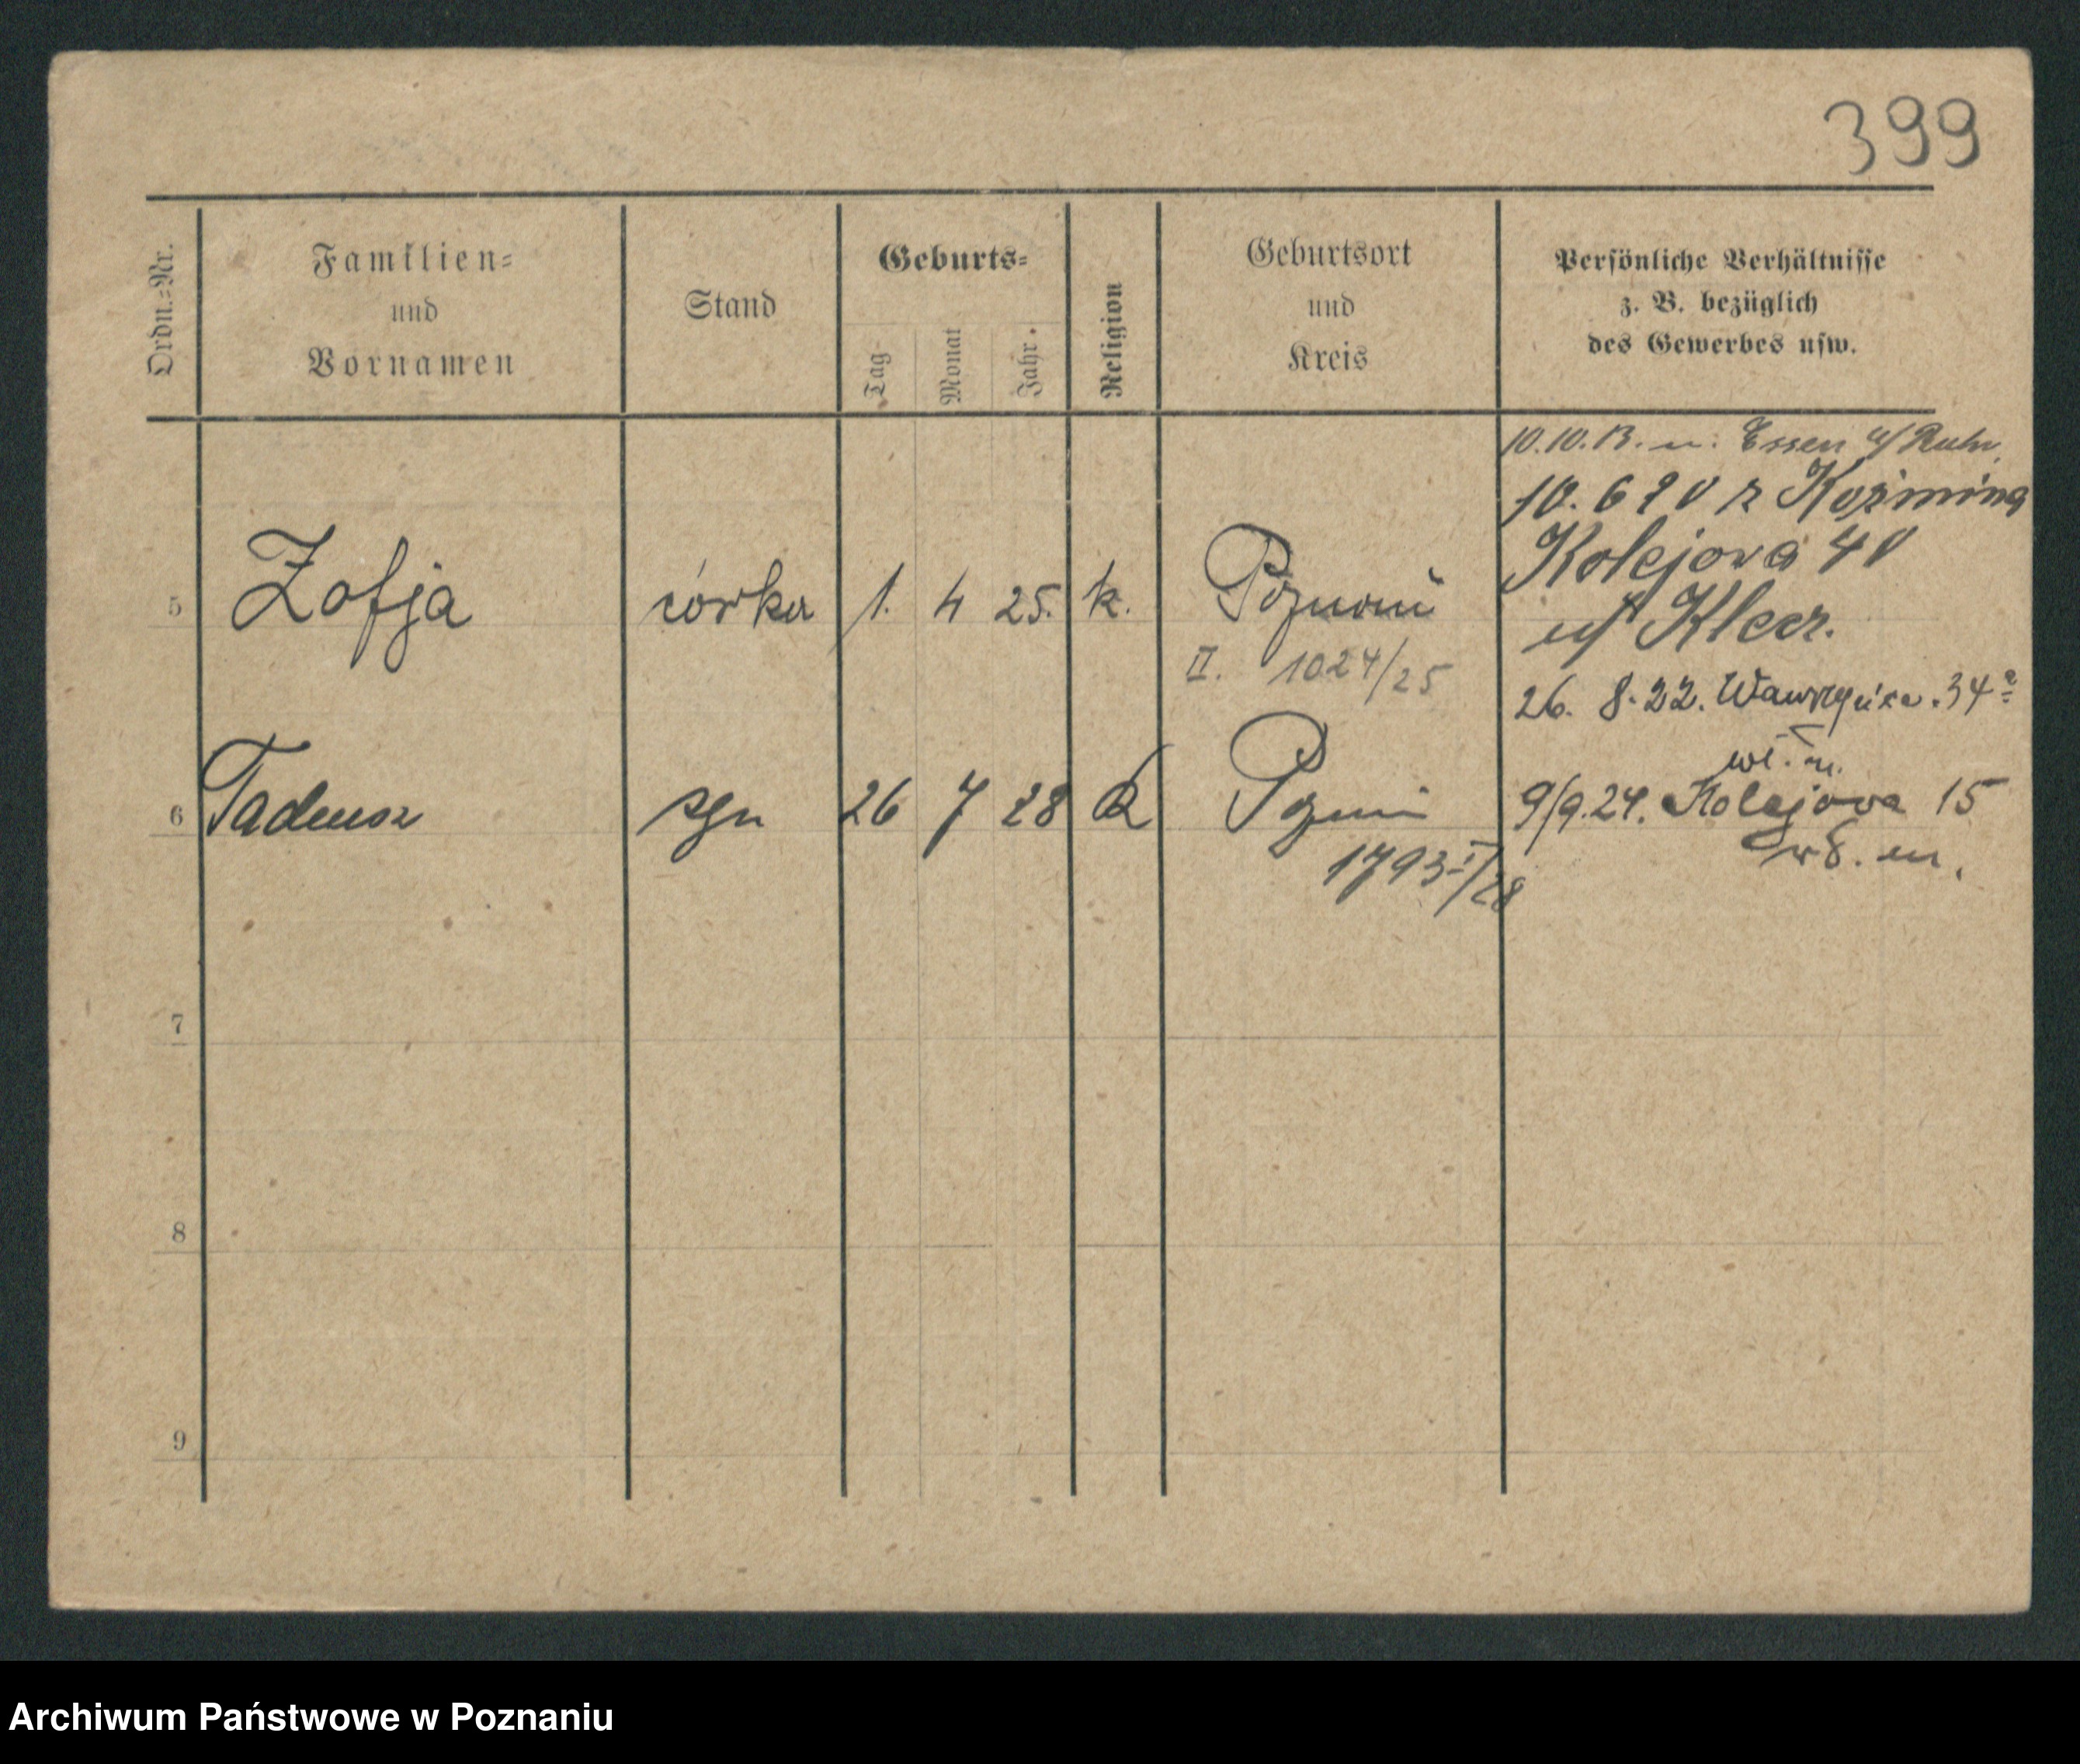 399
Ordn.-Nr.
Familien-
und
Vornamen
Stand
Geburts-
Tag
Monat
Jahr.
Religion
Geburtsort
und
Kreis
Persönliche Verhältnisse
z. B. bezüglich
des Gewerbes usw.
10.10.13. n. Essen a/ Ruhr
10. 6 20 z Koźmina
Kolejova 40
5 Zofja córka 1. 4 25. k. Poznań
II. 1024/25
26. 8. 22. Wawrzyńca. 34a
6 Tadeusz syn 26 7 28 k
9/9.24. Kolejova 15
1793 I/28
7
8
9
Archiwum Państwowe w Poznaniu